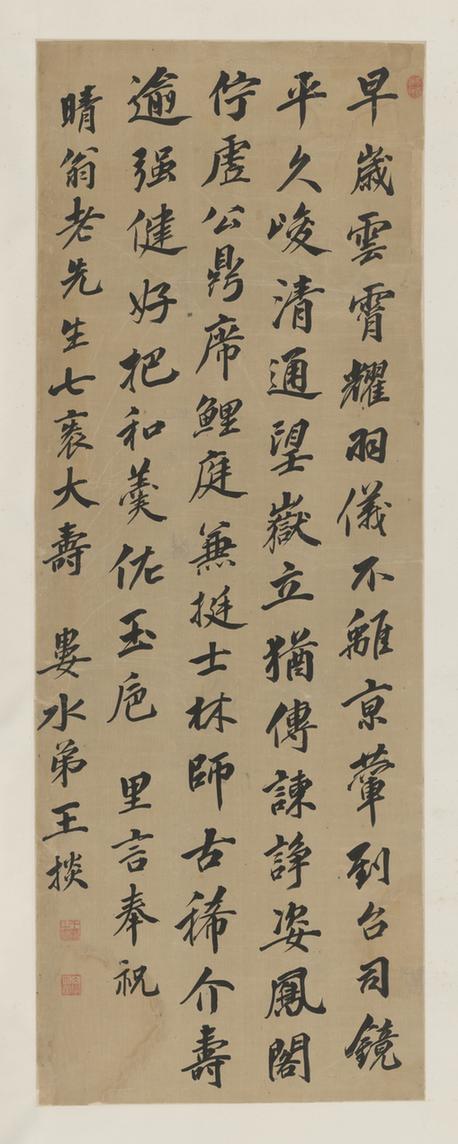 早歲雲霄耀羽儀不離京輦到台司鏡
平久峻清通望嶽立猶傳諫諍姿鳳閣
佇虛公鼎席鯉庭兼挺士林師古稀介壽
逾强健好把和羹佐玉巵 里言奉祝
晴翁老先生七袠大壽 婁水弟王掞